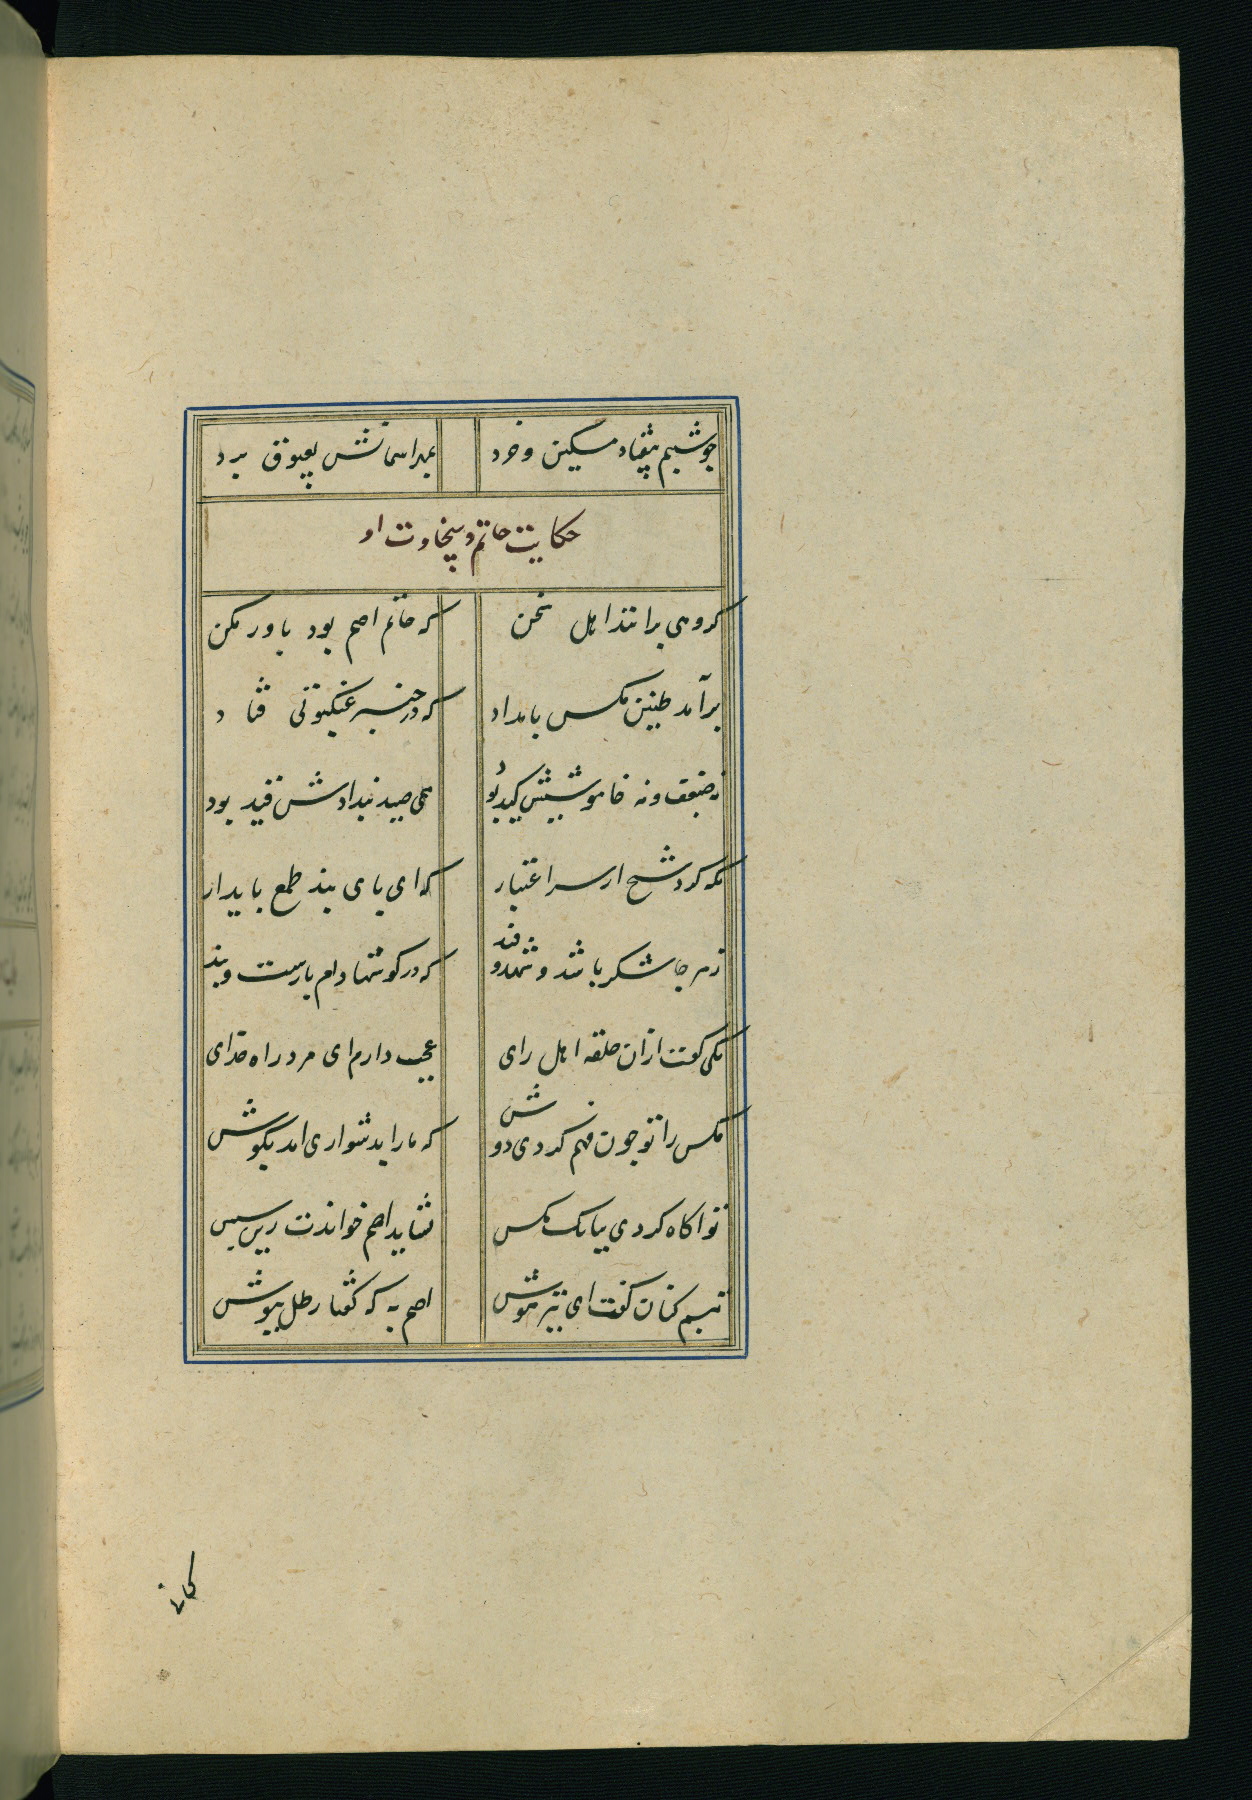 جو شبنم بیفتاد مسکین و خرد بمهر اسمانش بعیوق برد
حکایت حاتم و سخاوت او
کروهی برانند اهل سخن که حاتم اصم بود باور مکن
برآمد طنین مکس بامداد که در جنبر عنکبوتی فتاد
نه ضعف و نه خاموشیش کید بود مکس صید بنداذش قید بود
نکه کرد شیخ از سر اعتبار که ای پای بند طمع پایدار
نه هر جا شکر باشد و شهد و قند که در کوشها دام یارست و بند
یکی کفت ازان حلقه اهل رای عجب دارم ای مرد راه خدای
مکس را تو جون فهم کردی دوش که ما را بدشواری امد بکوش
تو اکاه کردی ببانک مکس نشاید اصم خواندت زین سبس
تبسم کنان کفت ای تیز هوش اصم به که کفتار باطل نیوش
کسانی